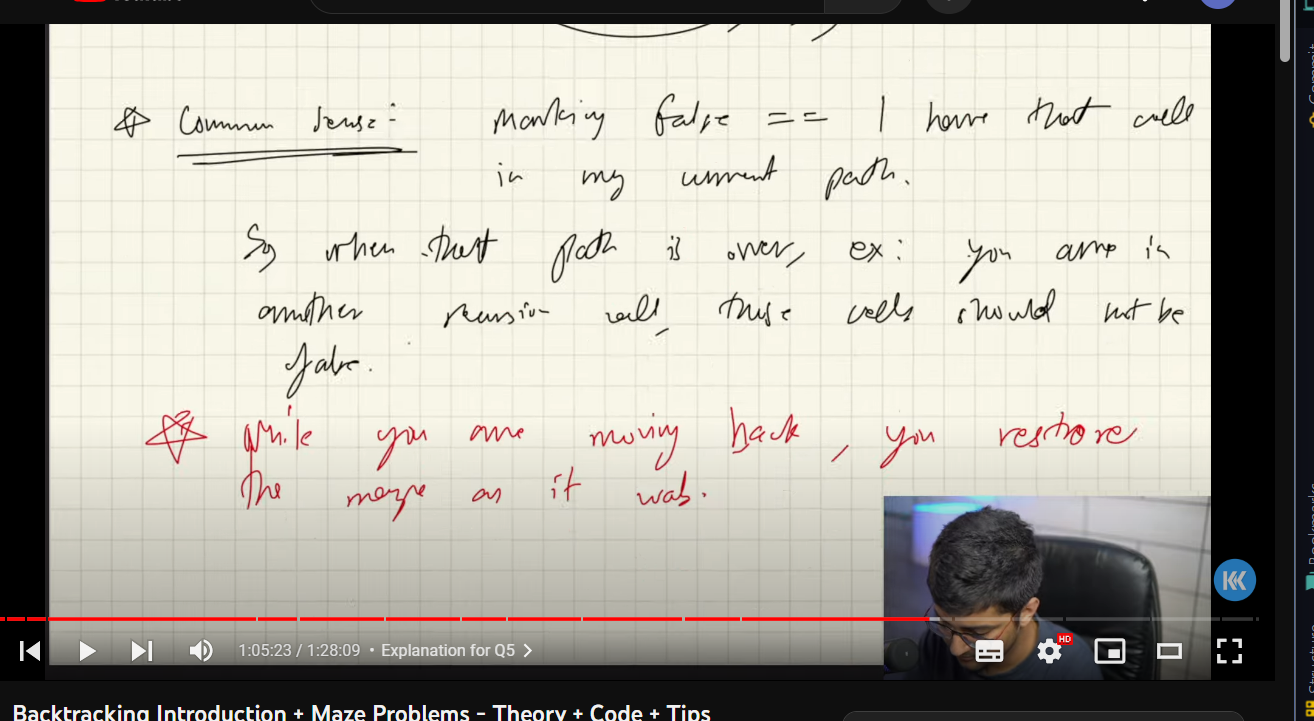 Common Sense:- Marking false == I have that cell
in my current path.
So when that path is over, ex: you are in
another recursion call, those cells should not be
false.
While you are moving back, you restore
the maze as it was.
1:05:23 / 1:28:09 • Explanation for Q5
HD
Backtracking Introduction + Maze Problems - Theory + Code + Tips
Commit
Bookmarks
Structure